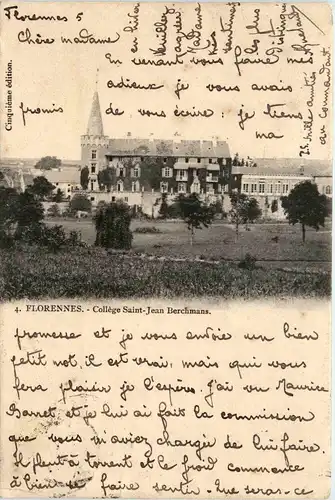 Florennes 5
Chère madame
En venant vous faire mes
adieux je vous avais
promis de vous écrire: je tiens
ma
Cinquième édition.
4. FLORENNES. - Collège Saint-Jean Berchmans.
promesse et je vous envoie un bien
petit mot, il est vrai, mais qui vous
fera plaisir je l'espère. J'ai vu Maurice
Barret, et je lui ai fait la commission
que vous m'aviez chargée de lui faire.
Il pleut à torrent et le froid commence
à bien se faire sentir. Que sera-ce
en hiver
Veuillez
agréer
Madame
mes
sentiments
les plus
distingués